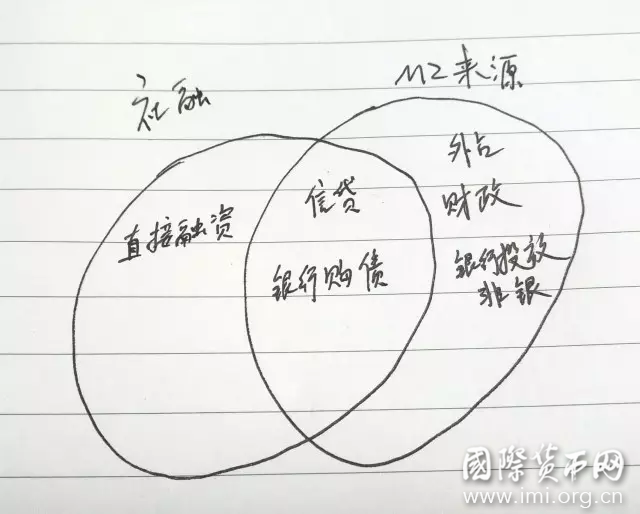 社融
M2来源
直接融资
信贷
银行购债
外占
财政
银行投放
非银
國際货币网
www.imi.org.cn